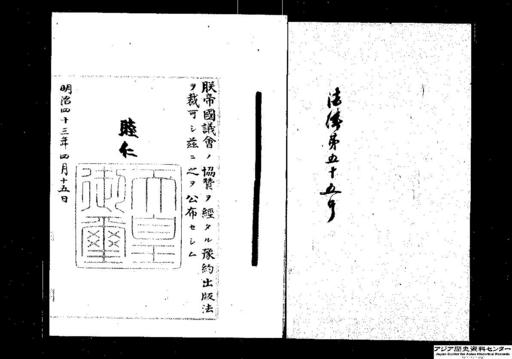 法律第五十五号
朕帝國議會ノ協賛ヲ經タル豫約出版法
ヲ裁可シ茲ニ之ヲ公布セシム
睦仁
天皇
御璽
明治四十三年四月十五日
アジア歴史資料センター
Japan Center for Asian Historical Records